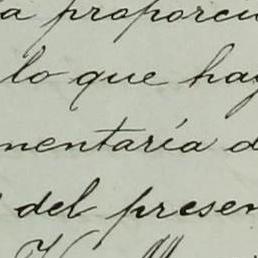 a proporci
lo que hay
mentaría d
del presen